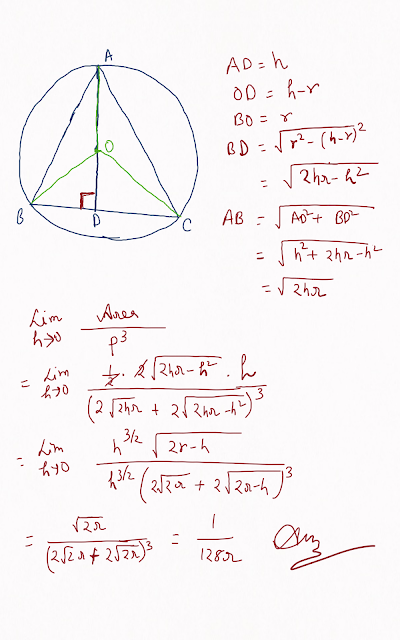 A
AD = h
OD = h-r
BO = r
BD = √(r² - (h-r)²)
= √(2hr - h²)
O
B
D
C
AB = √(AD² + BD²)
= √(h² + 2hr - h²)
= √(2hr)
Lim h→0 Area / P³
= Lim h→0 (1/2 · 2 √(2hr - h²) · h) / (2√(2hr) + 2√(2hr - h²))³
= Lim h→0 (h^(3/2) √(2r - h)) / (h^(3/2) (2√(2r) + 2√(2r - h))³)
= √(2r) / (2√(2r) + 2√(2r))³ = 1 / 128r Ans